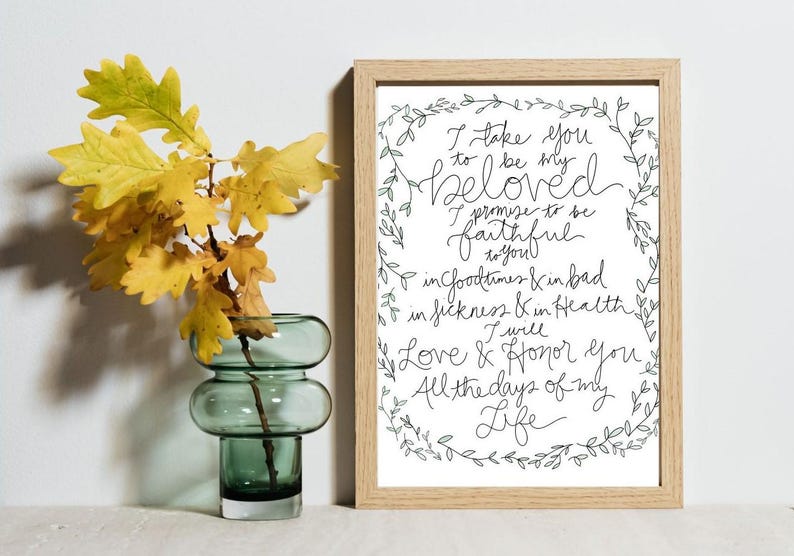 I take You
to be my
beloved
I promise to be
faithful
to You
in Good times & in bad
in Sickness & in Health
I will
Love & Honor You
All the days of my
Life